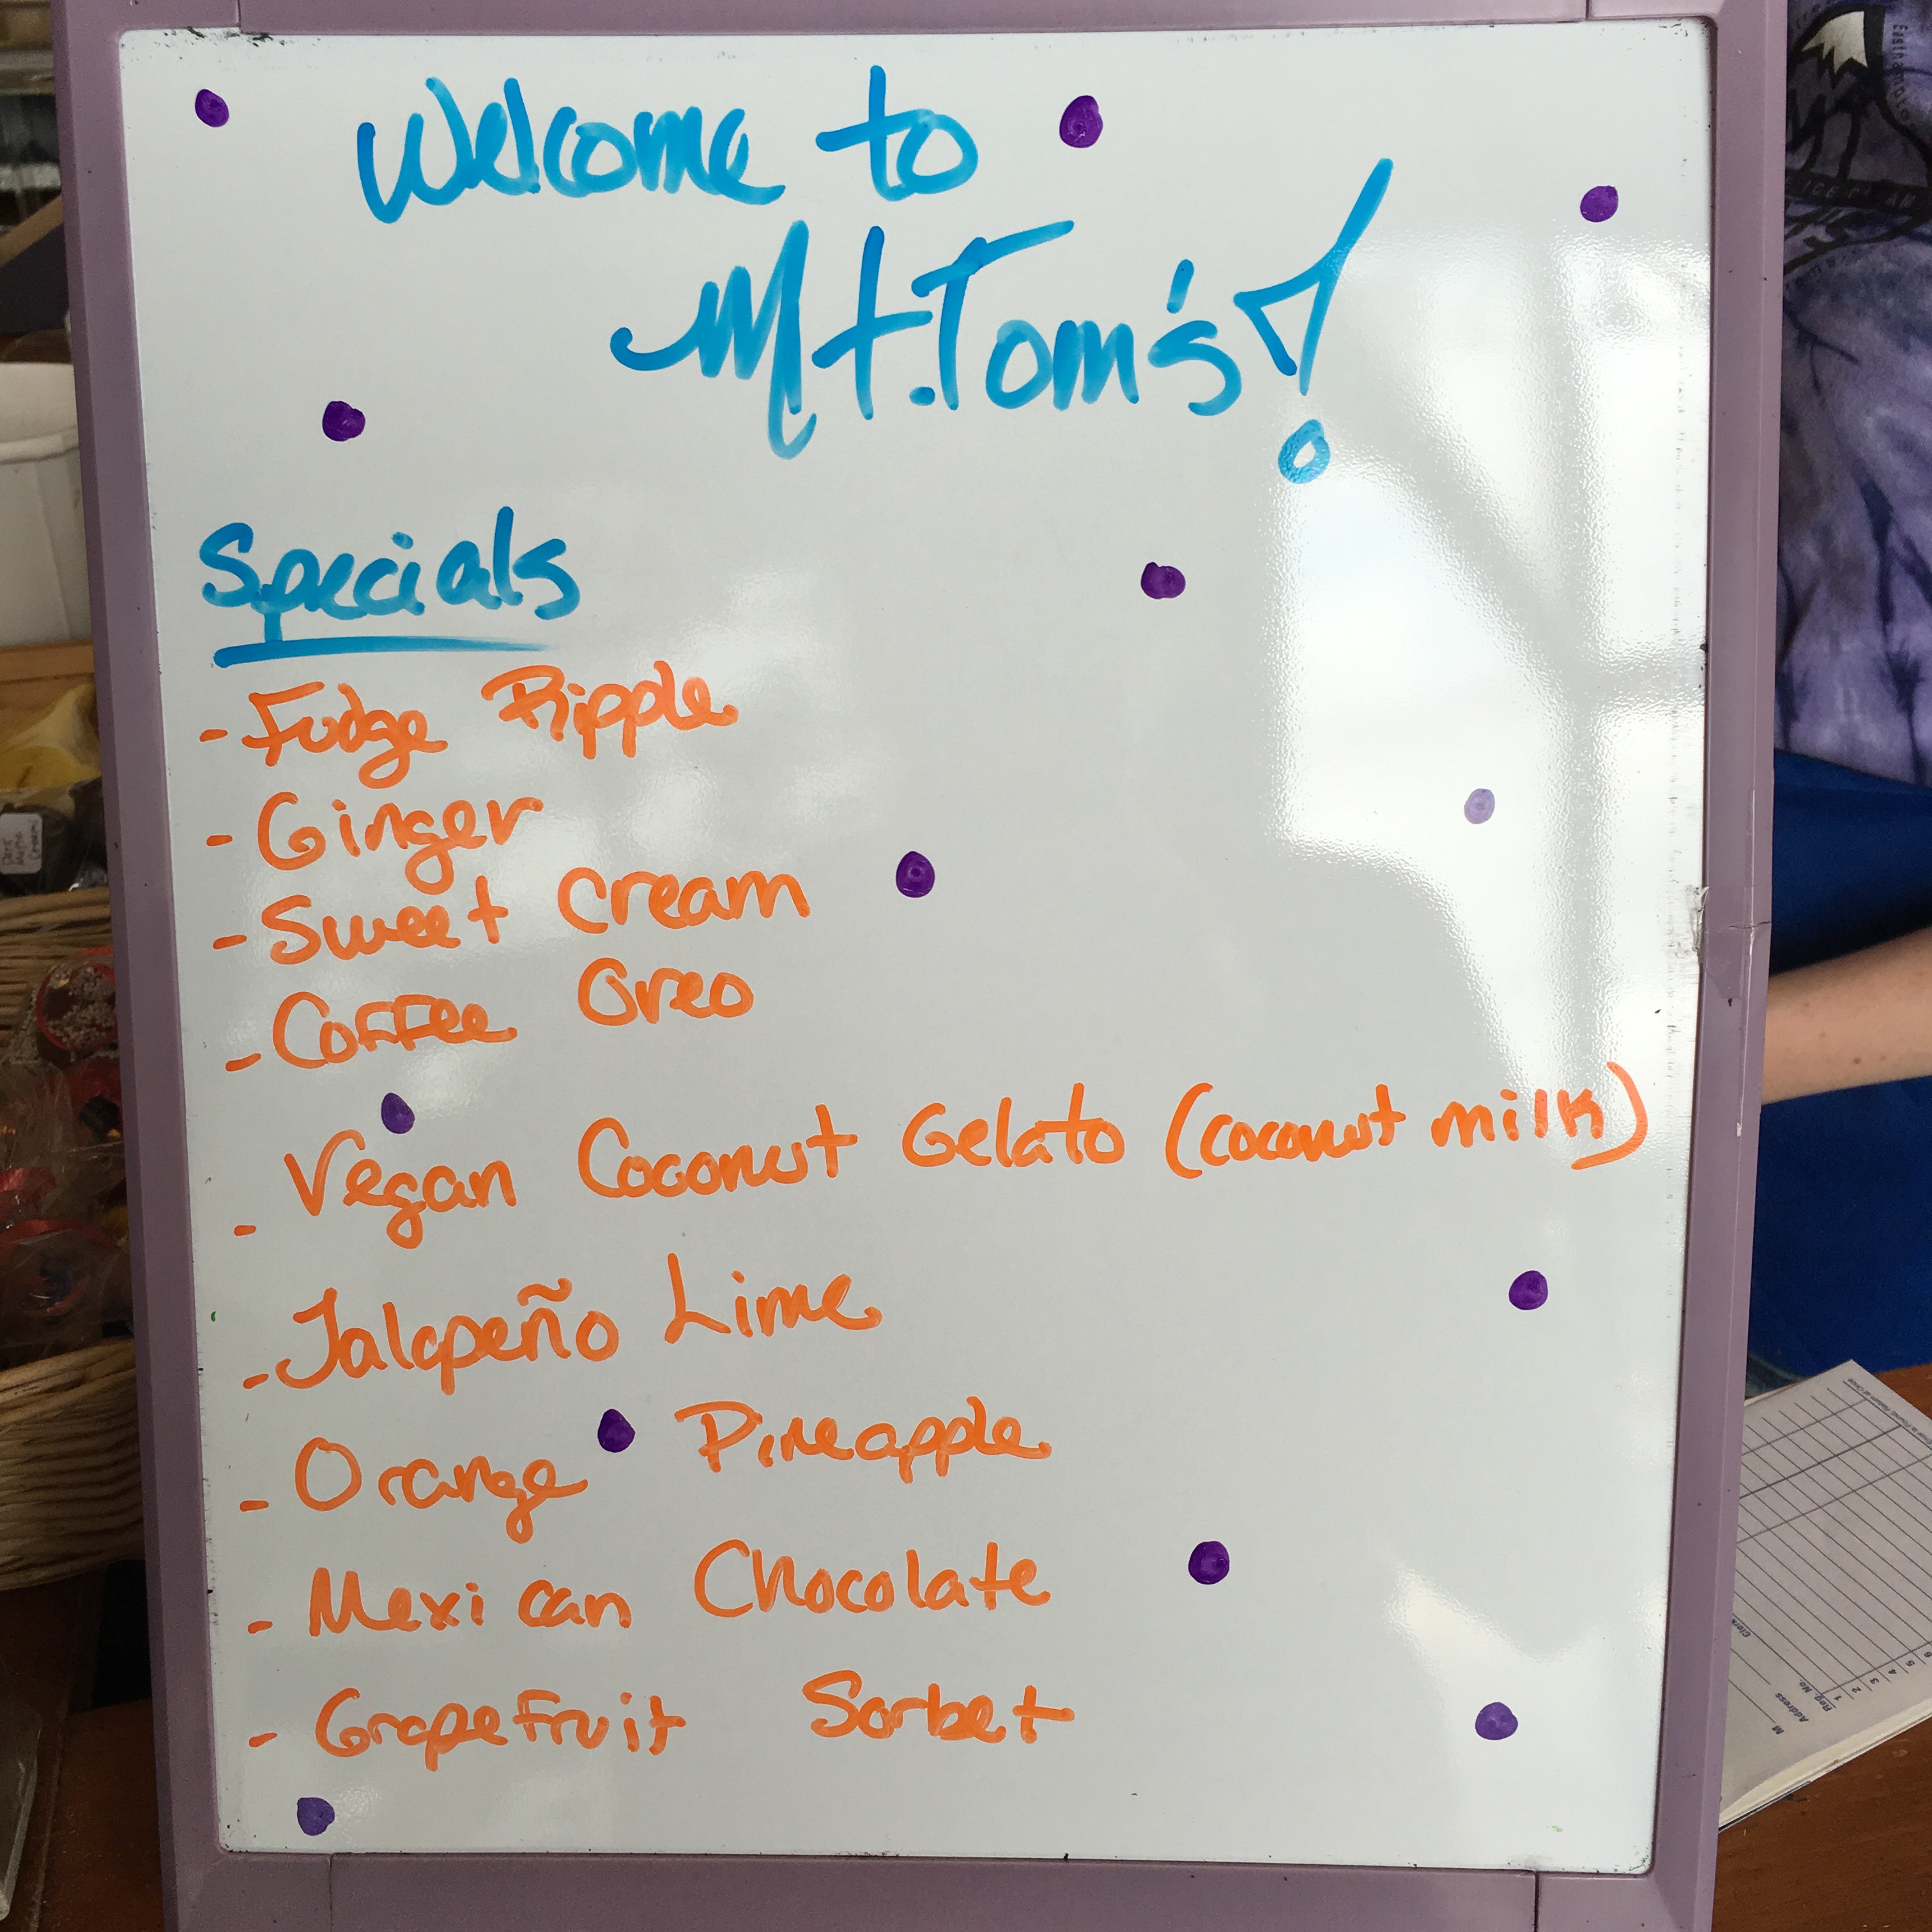 Welcome to
Mt. Tom's!
Specials
- Fudge Ripple
- Ginger
- Sweet Cream
- Coffee Oreo
- Vegan Coconut Gelato (coconut milk)
- Jalapeño Lime
- Orange Pineapple
- Mexican Chocolate
- Grapefruit Sorbet
ICE CREAM
Reg. No.
Address
M
1
2
3
4
5